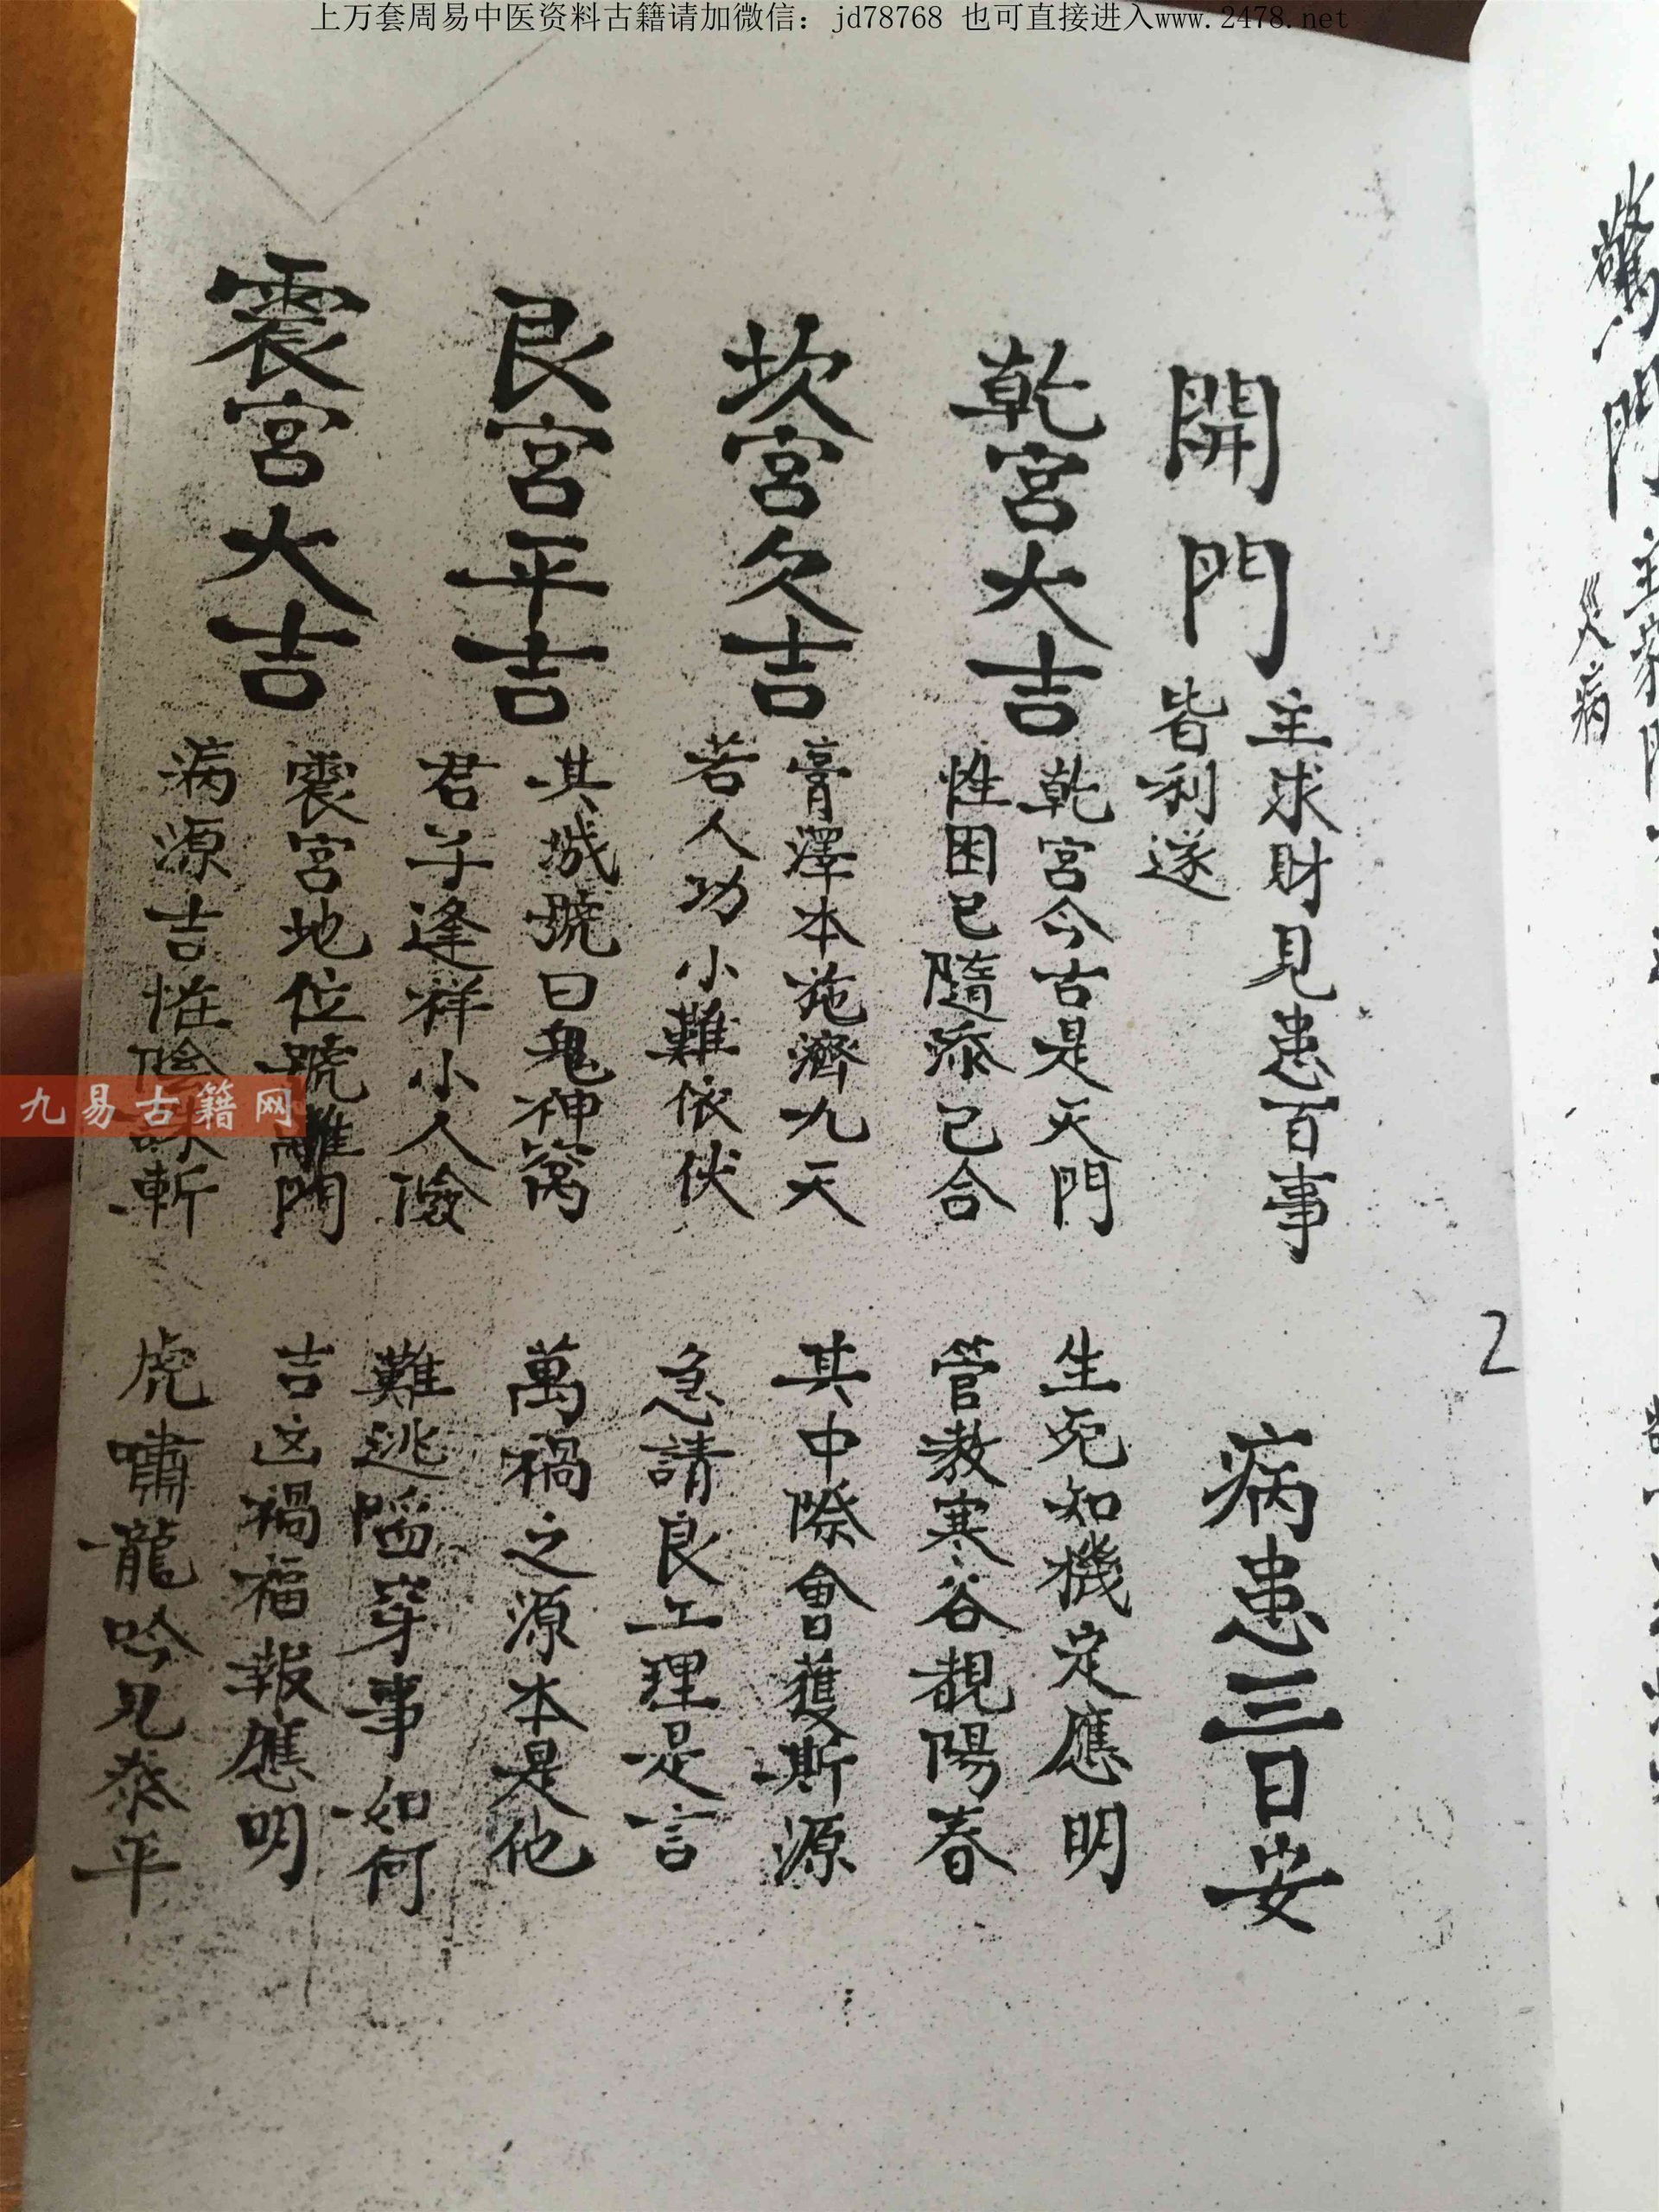 上万套周易中医资料古籍请加微信：jd78768 也可直接进入www.2478.net
驚門
主
災病
開門
主求財見患百事
皆利遂
病患三日安
乾宮大吉
乾宮今古是天門
生死知機定應明
性困已隨添己合
管教寒谷覩陽春
坎宮欠吉
膏澤本施濟九天
其中際會獲斯源
若人功小難依伏
急請良工理是言
艮宮平吉
其城號曰鬼神窩
萬禍之源本是他
君子逢祥小人儉
難逃陷穽事如何
震宮大吉
震宮地位號離門
吉凶禍福報應明
病源吉怪陰斬
虎嘯龍吟見泰平
2
九易古籍网